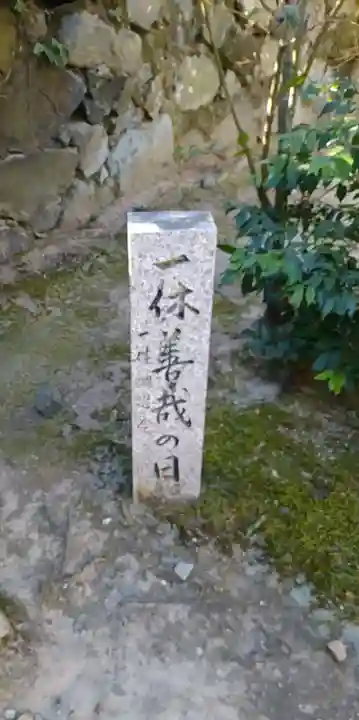 一休善哉の日